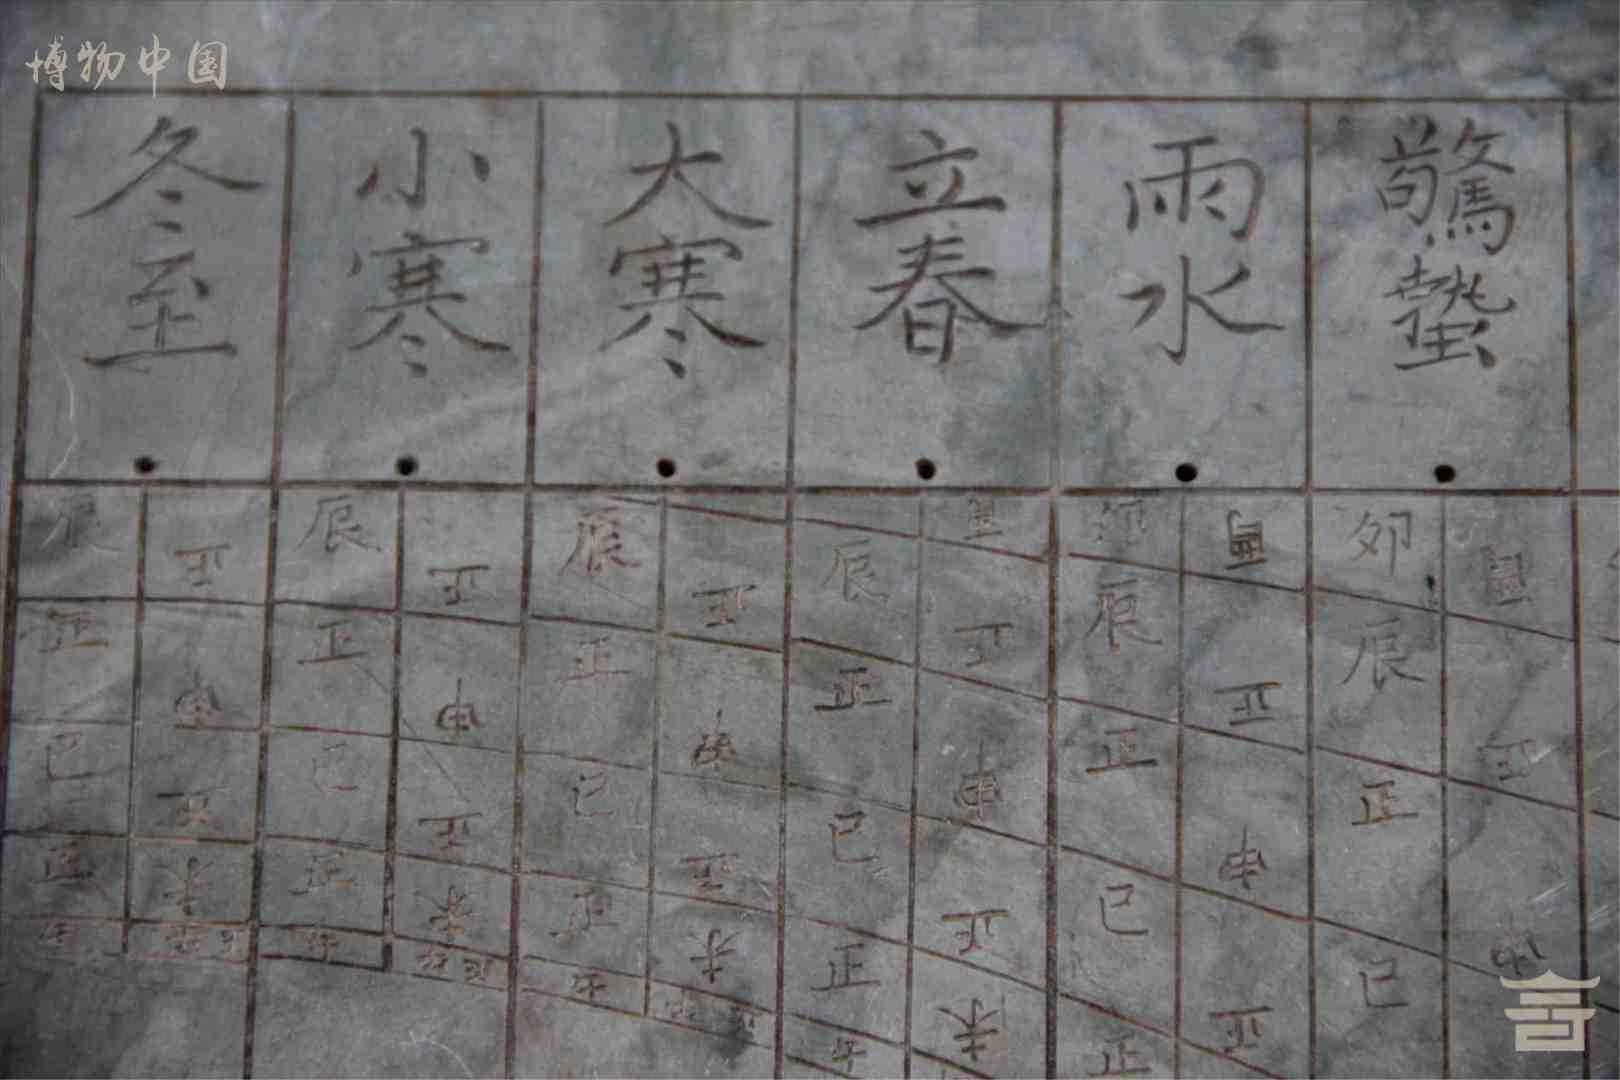 博物中国
冬至
小寒
大寒
立春
雨水
驚蟄
辰 正 辰 正 辰 正 辰 正 辰 正 卯
正 申 正 申 正 申 正 申 正 正 辰 正
巳 正 巳 正 巳 正 巳 正 巳 申 正
正 未 正 未 正 未 正 未 正 正 巳
午 午 午 午